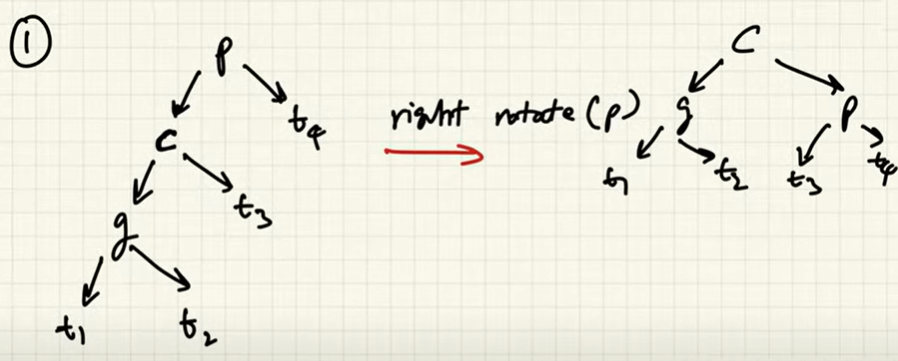 ①
p
c
t4
g
t3
t1
t2
right rotate (p)
C
g
p
t1
t2
t3
t4